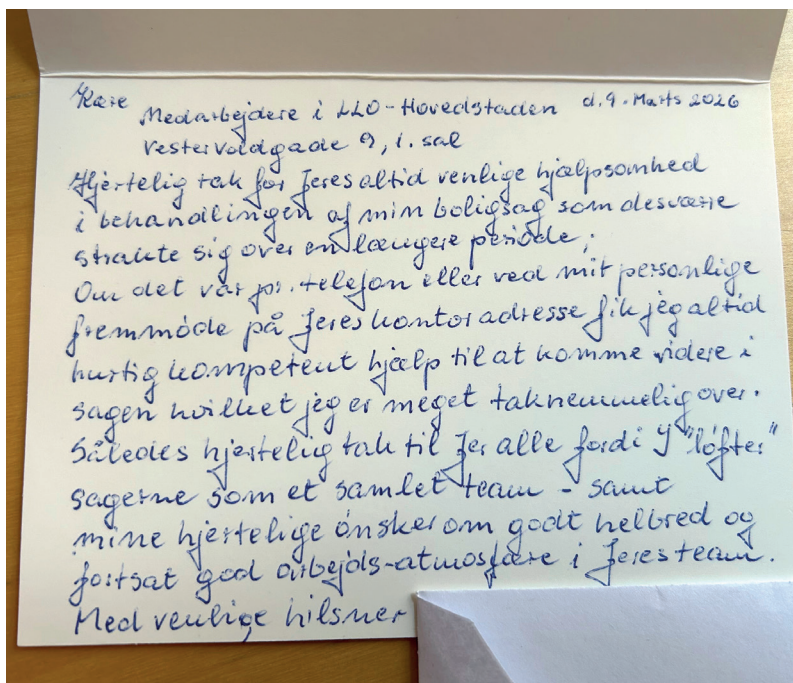 Kære
Medarbejdere i LLO-Hovedstaden d. 9. Marts 2026
Vestervoldgade 9, 1. sal
Hjertelig tak for Jeres altid venlige hjælpsomhed
i behandlingen af min boligsag som desværre
strakte sig over en længere periode;
Om det var pr. telefon eller ved mit personlige
fremmöde på Jeres kontor adresse fik jeg altid
hurtig kompetent hjælp til at komme videre i
sagen hvilket jeg er meget taknemmelig over.
Således hjertelig tak til Jer alle fordi I "löfter"
sagerne som et samlet team - samt
mine hjertelige önsker om godt helbred og
fortsat god arbejds-atmosfære i Jeres team.
Med venlige hilsner